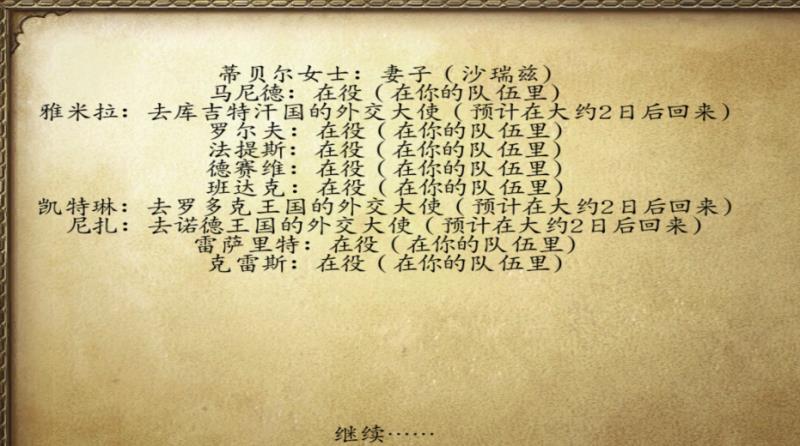 蒂贝尔女士：妻子（沙瑞兹）
马尼德：在役（在你的队伍里）
雅米拉：去库吉特汗国的外交大使（预计在大约2日后回来）
罗尔夫：在役（在你的队伍里）
法提斯：在役（在你的队伍里）
德赛维：在役（在你的队伍里）
班达克：在役（在你的队伍里）
凯特琳：去罗多克王国的外交大使（预计在大约2日后回来）
尼扎：去诺德王国的外交大使（预计在大约2日后回来）
雷萨里特：在役（在你的队伍里）
克雷斯：在役（在你的队伍里）
继续……